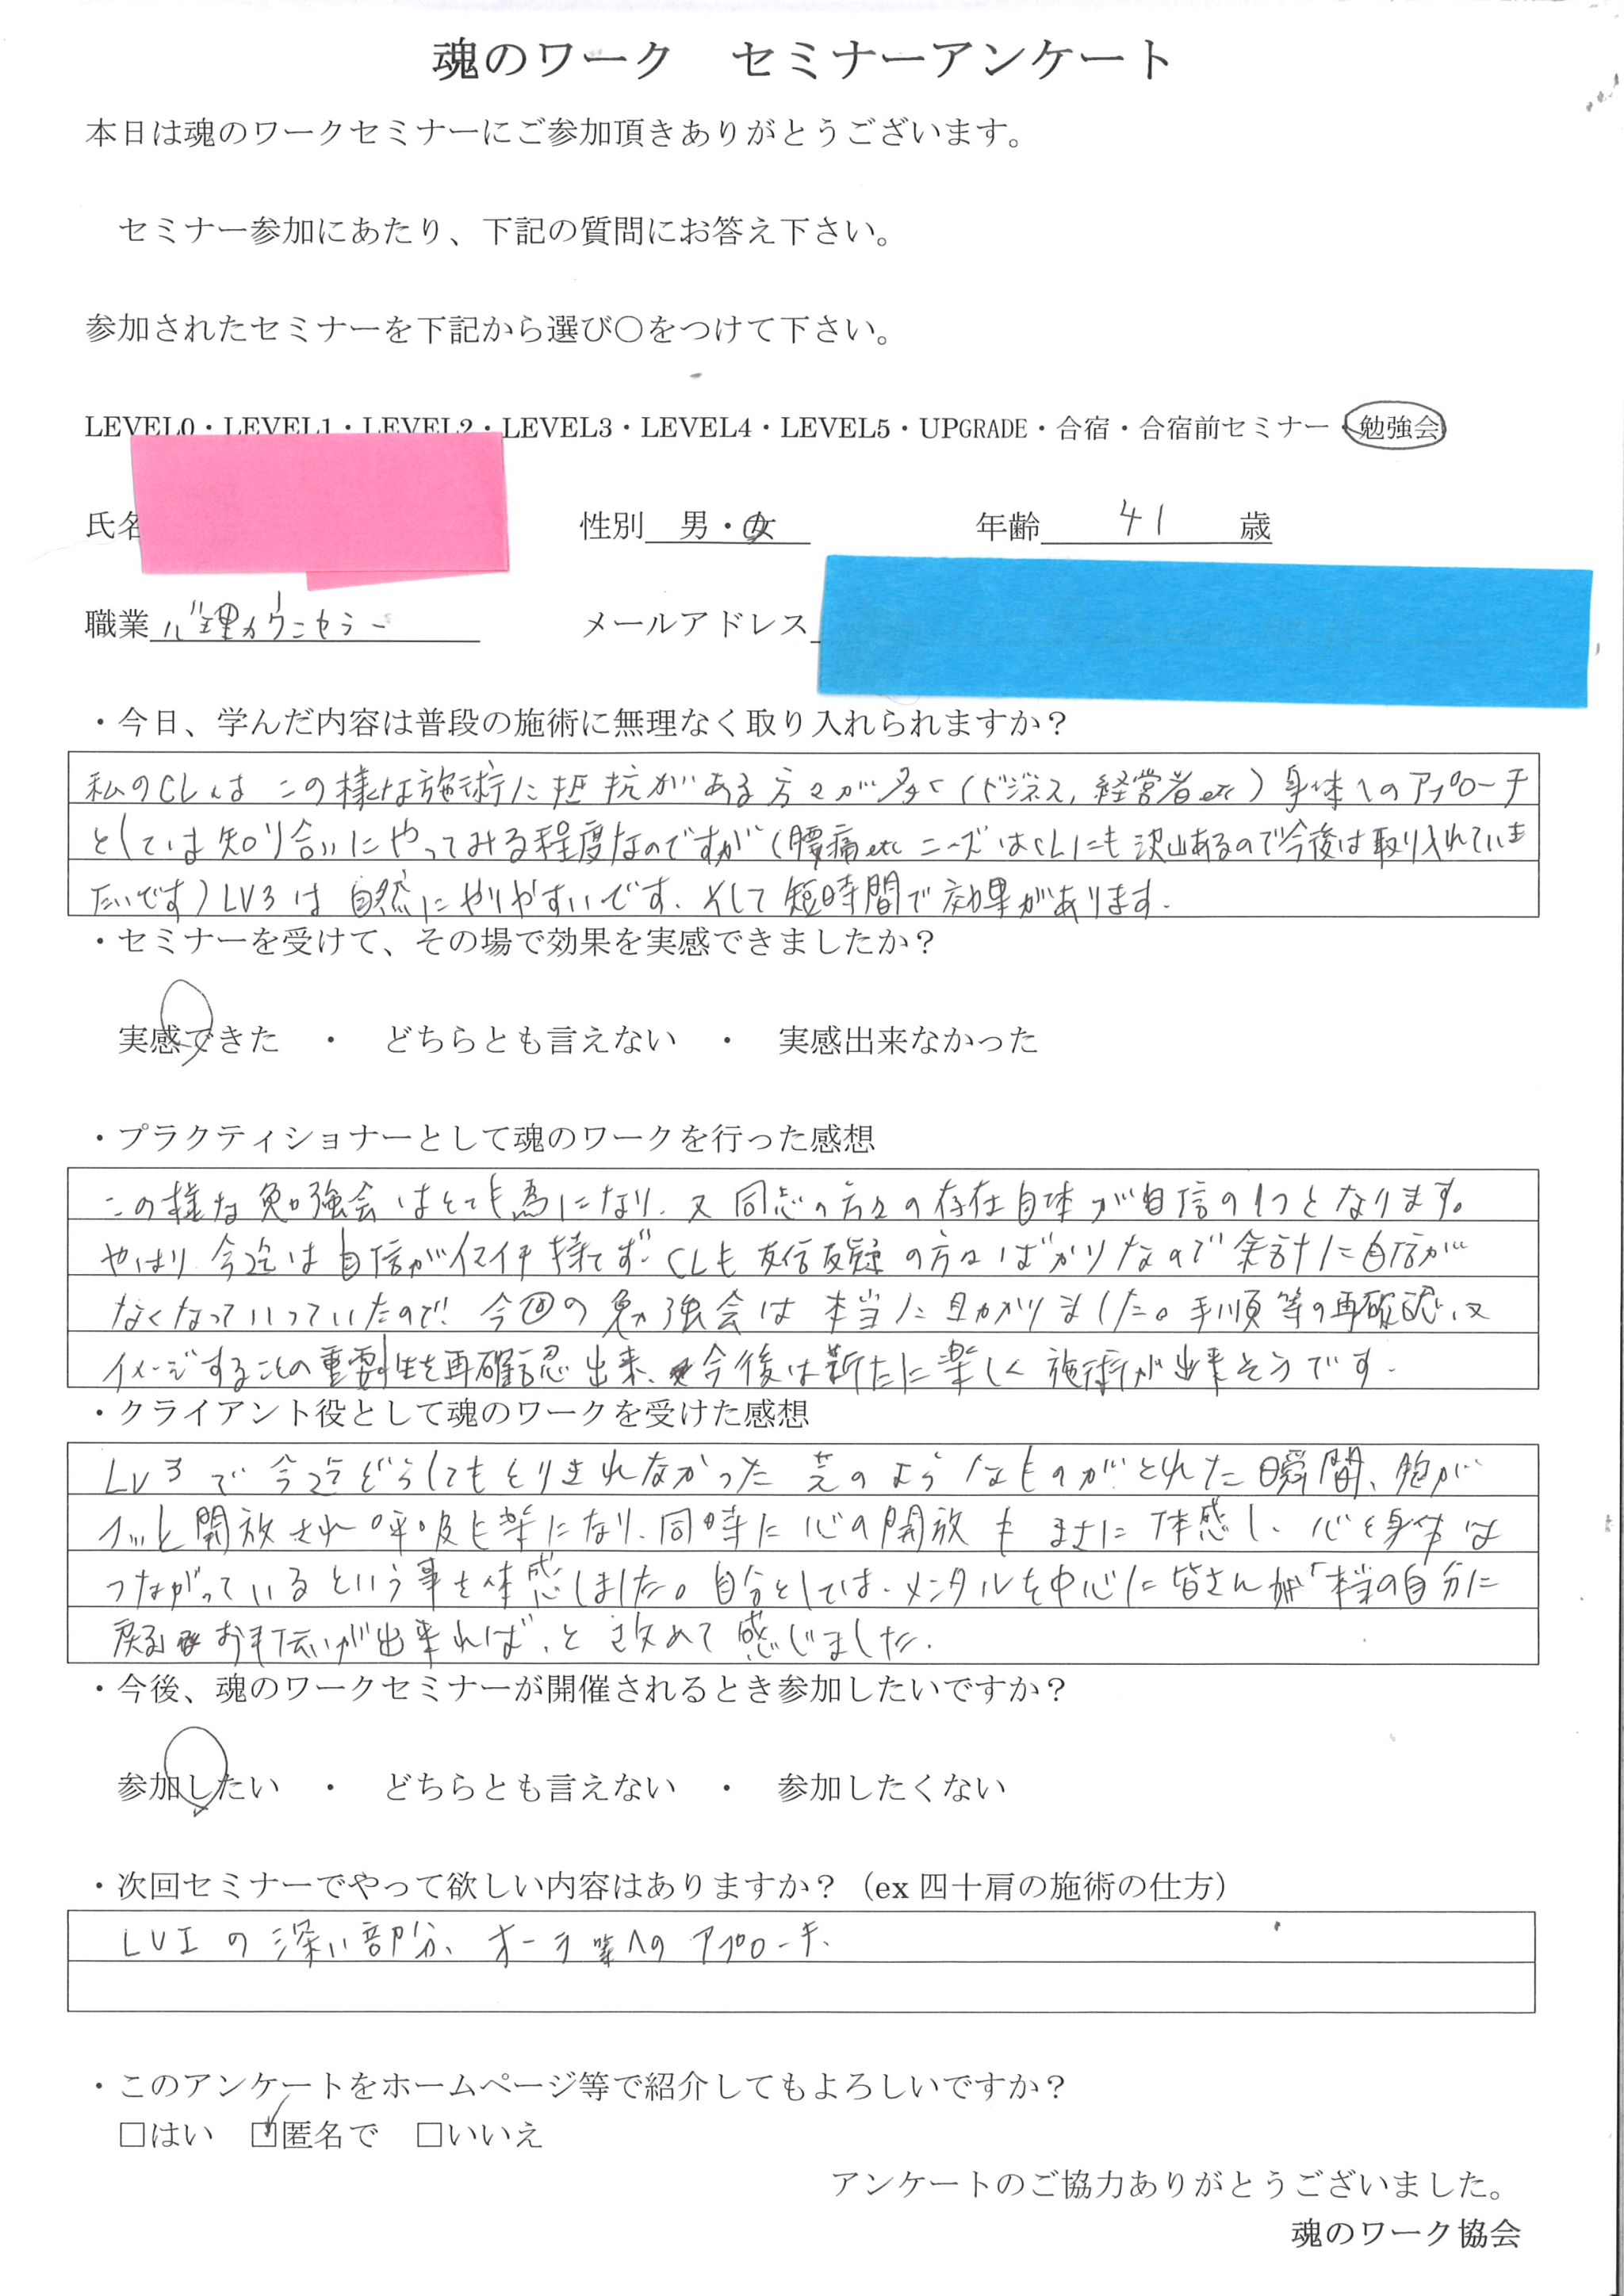 魂のワーク　セミナーアンケート
本日は魂のワークセミナーにご参加頂きありがとうございます。
セミナー参加にあたり、下記の質問にお答え下さい。
参加されたセミナーを下記から選び〇をつけて下さい。
LEVEL0・LEVEL1・LEVEL2・LEVEL3・LEVEL4・LEVEL5・UPGRADE・合宿・合宿前セミナー・勉強会
氏名　性別　男・女　年齢　41　歳
職業　心理カウンセラー　メールアドレス
・今日、学んだ内容は普段の施術に無理なく取り入れられますか？
私のCLは この様な施術に抵抗がある方々が多く（ビジネス, 経営者etc）身体へのアプローチ
としては知り合いにやってみる程度なのですが（腰痛etc ニーズはCLにも沢山あるので今後は取り入れていき
たいです）LV3は自然にやりやすいです。そして短時間で効果があります。
・セミナーを受けて、その場で効果を実感できましたか？
実感できた　・　どちらとも言えない　・　実感出来なかった
・プラクティショナーとして魂のワークを行った感想
この様な勉強会はとても為になり、又同志の方々の存在自体が自信の1つとなります。
やはり今迄は自信がイマイチ持てず CLも 半信半疑の方々ばかりなので余計に自信が
なくなっていっていたので、今回の勉強会は本当に助かりました。手順等の再確認、又
イメージすることの重要性を再確認出来、今後は新たに楽しく施術が出来そうです。
・クライアント役として魂のワークを受けた感想
LV3で今迄どうしてもとりきれなかった 芯のようなものがとれた瞬間、胸が
スッと開放され呼吸も楽になり、同時に心の開放も まさに体感し、心と身体は
つながっているという事を体感しました。自分としては、メンタルを中心に皆さんが「本当の自分に
戻るお手伝いが出来れば、と改めて感じました。
・今後、魂のワークセミナーが開催されるとき参加したいですか？
参加したい　・　どちらとも言えない　・　参加したくない
・次回セミナーでやって欲しい内容はありますか？（ex 四十肩の施術の仕方）
LVIの深い部分、オーラへのアプローチ、
・このアンケートをホームページ等で紹介してもよろしいですか？
□はい　☑匿名で　□いいえ
アンケートのご協力ありがとうございました。
魂のワーク協会